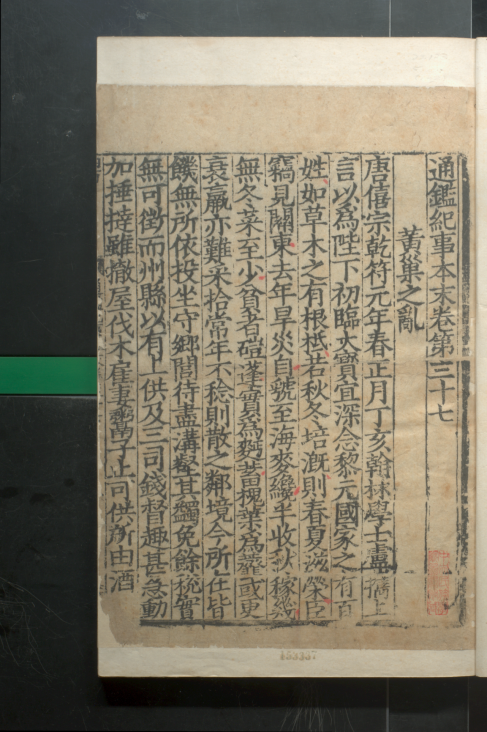 通鑑紀事本末卷第三十七
黃巢之亂
唐僖宗乾符元年春正月丁亥翰林學士盧攜上
言以為陛下初臨大寶宜深念黎元國家之有百
姓如草木之有根柢若秋冬培溉則春夏滋榮臣
竊見關東去年旱災自虢至海麥纔半收秋稼幾
無冬菜至少貧者磑蓬實為麪蓄槐葉為虀或更
衰羸亦難采拾常年不稔則散之鄰境今所在皆
饑無所依投坐守鄉閭待盡溝壑其蠲免餘稅實
無可徵而州縣以有上供及三司錢督趣甚急動
加捶撻雖撤屋伐木雇妻鬻子止可供所由酒
153357